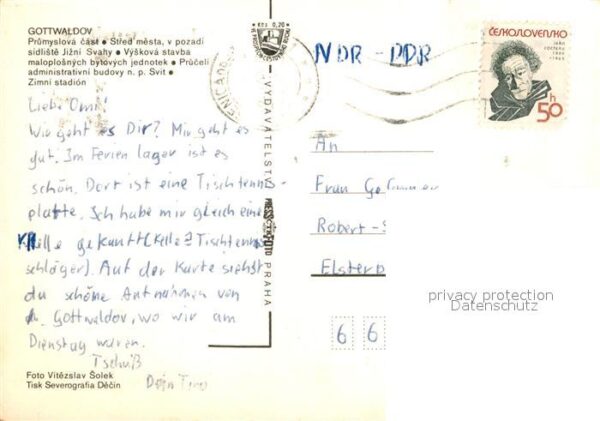 GOTTWALDOV
Průmyslová část • Střed města, v pozadí
sídliště Jižní Svahy • Výšková stavba
maloplošných bytových jednotek • Průčelí
administrativní budovy n. p. Svit •
Zimní stadión
Liebe Omi!
Wir geht es Dir? Mir geht es
gut. Im Ferien lager ist es
schön. Dort ist eine Tischtennis-
platte. Ich habe mir gleich eine
Kelle gekauft (Kelle = Tischtennis
schläger). Auf der Karte siehst
du schöne Aufnahmen von
Gottwaldov, wo wir am
Dienstag waren.
Tschüß
Dein Timo
Foto Vítězslav Šolek
Tisk Severografia Děčín
Kčs 0,20
VYDAVATELSTVÍ PRESSFOTO PRAHA
NDR - DDR
ČESKOSLOVENSKO
50h
An
Frau
Robert-S
Elsterb
6 6
privacy protection
Datenschutz